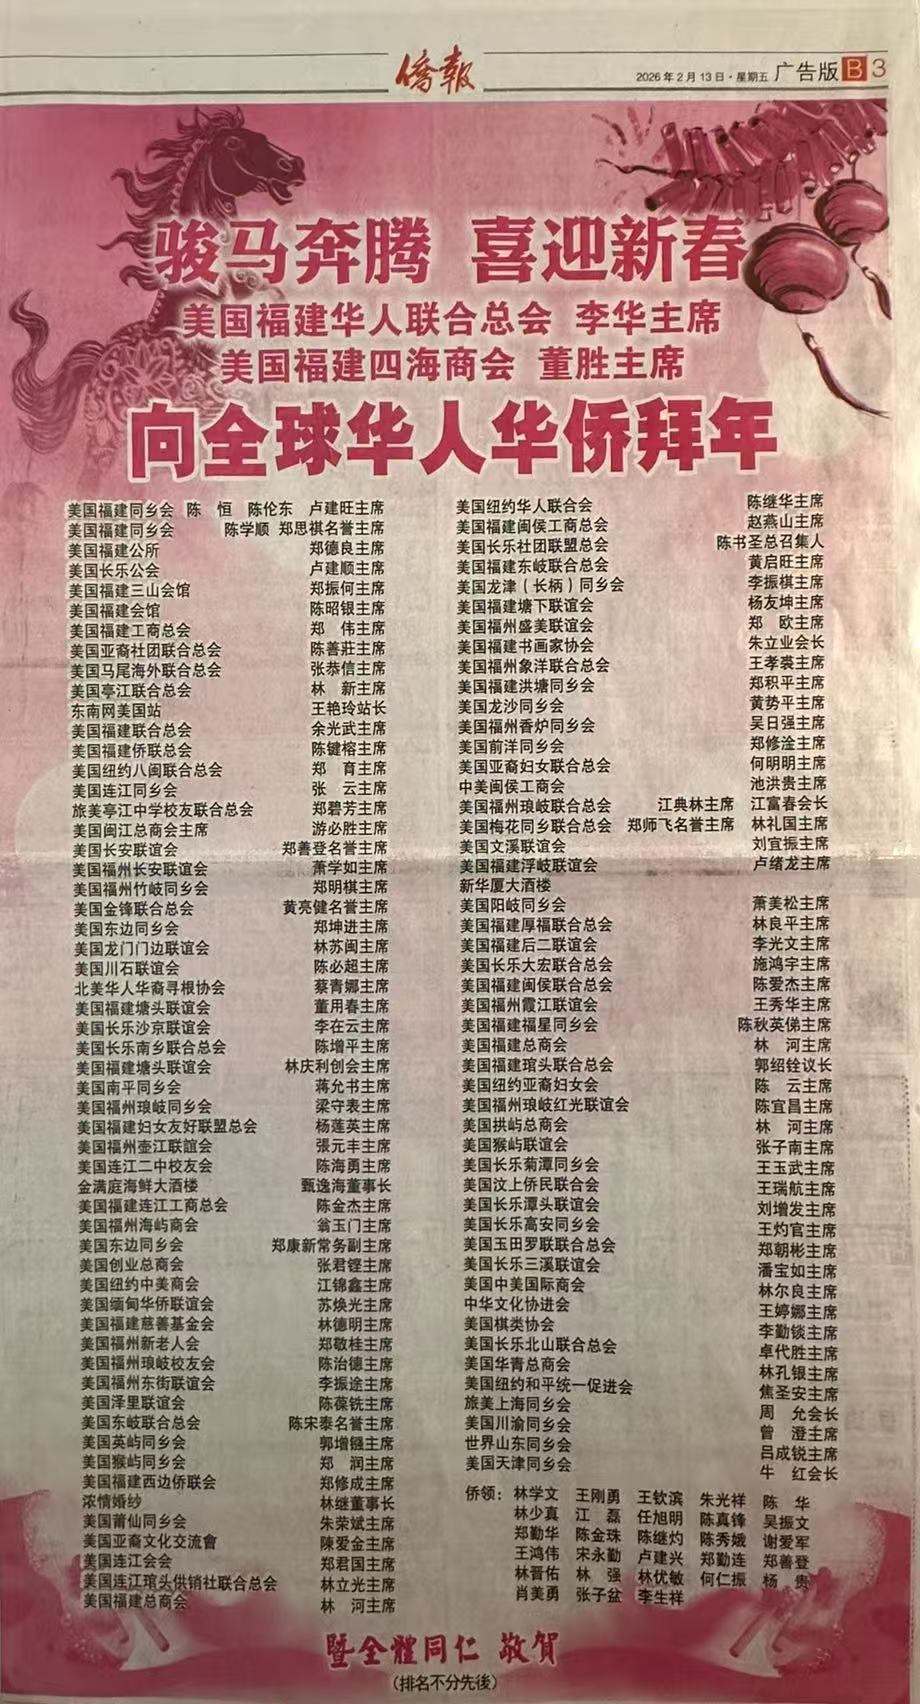 僑報
2026年2月13日·星期五 广告版 B3
骏马奔腾 喜迎新春
美国福建华人联合总会 李华主席
美国福建四海商会 董胜主席
向全球华人华侨拜年
美国福建同乡会 陈 恒 陈伦东 卢建旺主席
美国福建同乡会 陈学顺 郑思祺名誉主席
美国福建公所 郑德良主席
美国长乐公会 卢建顺主席
美国福建三山会馆 郑振何主席
美国福建会馆 陈昭银主席
美国福建工商总会 郑 伟主席
美国亚裔社团联合总会 陈善莊主席
美国马尾海外联合总会 张恭信主席
美国亭江联合总会 林 新主席
东南网美国站 王艳玲站长
美国福建联合总会 余光武主席
美国福建侨联总会 陈键榕主席
美国纽约八闽联合总会 郑 育主席
美国连江同乡会 张 云主席
旅美亭江中学校友联合总会 郑碧芳主席
美国闽江总商会主席 游必胜主席
美国长安联谊会 郑善登名誉主席
美国福州长安联谊会 萧学如主席
美国福州竹岐同乡会 郑明棋主席
美国金锋联合总会 黄亮健名誉主席
美国东边同乡会 郑坤进主席
美国龙门门边联谊会 林苏闽主席
美国川石联谊会 陈必超主席
北美华人华裔寻根协会 蔡青娜主席
美国福建塘头联谊会 董用春主席
美国长乐沙京联谊会 李在云主席
美国长乐南乡联合总会 陈增平主席
美国福建塘头联谊会 林庆利创会主席
美国南平同乡会 蒋允书主席
美国福州琅岐同乡会 梁守表主席
美国福建妇女友好联盟总会 杨莲英主席
美国福州壶江联誼会 張元丰主席
美国连江二中校友会 陈海勇主席
金满庭海鲜大酒楼 甄逸海董事长
美国福建连江工商总会 陈金杰主席
美国福州海屿商会 翁玉门主席
美国东边同乡会 郑康新常务副主席
美国创业总商会 张君铿主席
美国纽约中美商会 江锦鑫主席
美国缅甸华侨联谊会 苏焕光主席
美国福建慈善基金会 林德明主席
美国福州新老人会 郑敬桂主席
美国福州琅岐校友会 陈治德主席
美国福州东街联谊会 李振途主席
美国泽里联谊会 陈葆铣主席
美国东岐联合总会 陈宋泰名誉主席
美国英屿同乡会 郭增镪主席
美国猴屿同乡会 郑 润主席
美国福建西边侨联会 郑修成主席
浓情婚纱 林继董事长
美国莆仙同乡会 朱荣斌主席
美国亚裔文化交流會 陳爱金主席
美国连江会会 郑君国主席
美国连江琯头供销社联合总会 林立光主席
美国福建总商会 林 河主席
美国纽约华人联合会 陈继华主席
美国福建闽侯工商总会 赵燕山主席
美国长乐社团联盟总会 陈书圣总召集人
美国福建东岐联合总会 黄启旺主席
美国龙津（长柄）同乡会 李振棋主席
美国福建塘下联谊会 杨友坤主席
美国福州盛美联谊会 郑 欧主席
美国福建书画家协会 朱立业会长
美国福州象洋联合总会 王孝裘主席
美国福建洪塘同乡会 郑积平主席
美国龙沙同乡会 黄势平主席
美国福州香炉同乡会 吴日强主席
美国前洋同乡会 郑修淦主席
美国亚裔妇女联合总会 何明明主席
中美闽侯工商会 池洪贵主席
美国福州琅岐联合总会 江典林主席 江富春会长
美国梅花同乡联合总会 郑师飞名誉主席 林礼国主席
美国文溪联谊会 刘宜振主席
美国福建浮岐联谊会 卢绪龙主席
新华厦大酒楼
美国阳岐同乡会 萧美松主席
美国福建厚福联合总会 林良平主席
美国福建后二联谊会 李光文主席
美国长乐大宏联合总会 施鸿宇主席
美国福建闽侯联合总会 陈爱杰主席
美国福州霞江联谊会 王秀华主席
美国福建福星同乡会 陈秋英俤主席
美国福建总商会 林 河主席
美国福建琯头联合总会 郭绍铨议长
美国纽约亚裔妇女会 陈 云主席
美国福州琅岐红光联谊会 陈宜昌主席
美国拱屿总商会 林 河主席
美国猴屿联谊会 张子南主席
美国长乐菊潭同乡会 王玉武主席
美国汶上侨民联合会 王瑞航主席
美国长乐潭头联谊会 刘增发主席
美国长乐高安同乡会 王灼官主席
美国玉田罗联联合总会 郑朝彬主席
美国长乐三溪联谊会 潘宝如主席
美国中美国际商会 林尔良主席
中华文化协进会 王婷娜主席
美国棋类协会 李勤锬主席
美国长乐北山联合总会 卓代胜主席
美国华青总商会 林孔银主席
美国纽约和平统一促进会 焦圣安主席
旅美上海同乡会 周 允会长
美国川渝同乡会 曾 澄主席
世界山东同乡会 吕成锐主席
美国天津同乡会 牛 红会长
侨领：林学文 王刚勇 王钦滨 朱光祥 陈 华
林少真 江 磊 任旭明 陈真锋 吴振文
郑勤华 陈金珠 陈继灼 陈秀娥 谢爱军
王鸿伟 宋永勤 卢建兴 郑勤连 郑善登
林晋佑 林 强 林优敏 何仁振 杨 贵
肖美勇 张子盆 李生祥
暨全體同仁 敬賀
（排名不分先後）